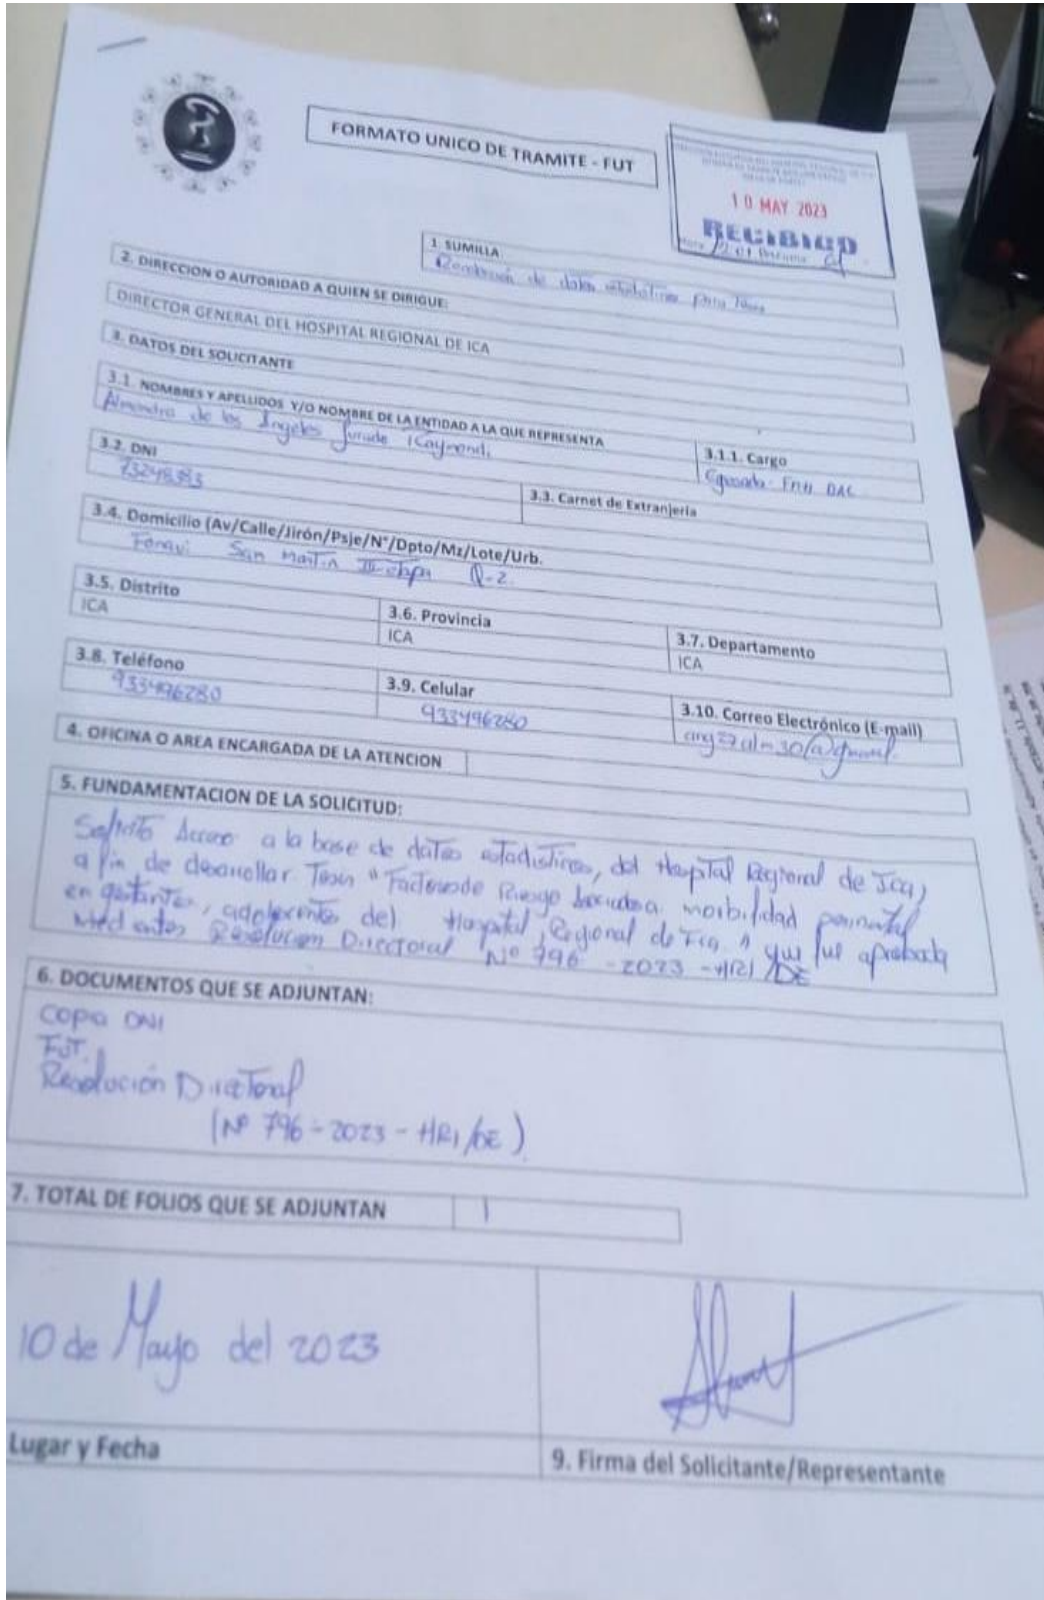 FORMATO UNICO DE TRAMITE - FUT
10 MAY 2023
RECIBIDO
1. SUMILLA
de datos estadisticos para Tesis
2. DIRECCION O AUTORIDAD A QUIEN SE DIRIGUE:
DIRECTOR GENERAL DEL HOSPITAL REGIONAL DE ICA
3. DATOS DEL SOLICITANTE
3.1. NOMBRES Y APELLIDOS Y/O NOMBRE DE LA ENTIDAD A LA QUE REPRESENTA
3.1.1. Cargo
de los Angeles Jurado Raymondi
Egresada
3.2. DNI
3.3. Carnet de Extranjeria
3.4. Domicilio (Av/Calle/Jirón/Psje/N°/Dpto/Mz/Lote/Urb.
Fonavi San Martin III etapa Q-2
3.5. Distrito
3.6. Provincia
3.7. Departamento
ICA
ICA
ICA
3.8. Teléfono
3.9. Celular
3.10. Correo Electrónico (E-mail)
933496280
933496280
4. OFICINA O AREA ENCARGADA DE LA ATENCION
5. FUNDAMENTACION DE LA SOLICITUD:
Solicito Acceso a la base de datos estadisticos, del Hospital Regional de Ica,
a fin de desarrollar Tesis "Factores de Riesgo morbilidad perinatal
en gestantes, adolescentes del Hospital, Regional de Ica." que fue aprobada
Resolucion Directoral Nº 796 -2023 -HRI/DE
6. DOCUMENTOS QUE SE ADJUNTAN:
Copia DNI
FUT.
Resolución Directoral
(Nº 796-2023-HRI/DE)
7. TOTAL DE FOLIOS QUE SE ADJUNTAN
1
10 de Mayo del 2023
Lugar y Fecha
9. Firma del Solicitante/Representante